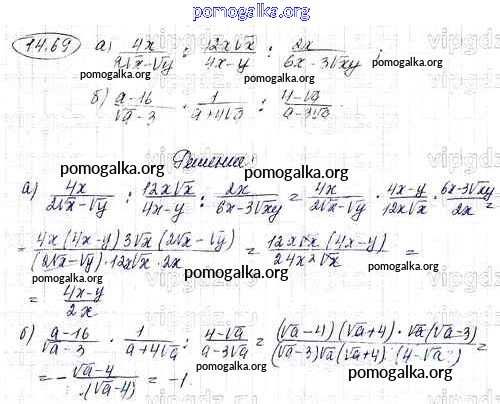 pomogalka.org
14.69 а) 4x/(2√x-√y) : 12x√x/(4x-y) : 2x/(6x-3√xy) ;
pomogalka.org pomogalka.org
б) (a-16)/(√a-3) · 1/(a+4√a) : (4-√a)/(a-3√a).
Решение:
pomogalka.org pomogalka.org
а) 4x/(2√x-√y) : 12x√x/(4x-y) : 2x/(6x-3√xy) = 4x/(2√x-√y) · (4x-y)/(12x√x) · (6x-3√xy)/2x =
pomogalka.org
= 4x(4x-y)3√x(2√x-√y)/((2√x-√y)·12x√x·2x) = 12x√x(4x-y)/(24x²√x) =
pomogalka.org pomogalka.org
= (4x-y)/2x
pomogalka.org
б) (a-16)/(√a-3) · 1/(a+4√a) : (4-√a)/(a-3√a) = (√a-4)(√a+4)·√a(√a-3)/((√a-3)√a(√a+4)(4-√a)) =
= -(√a-4)/(√a-4) = -1.
pomogalka.org pomogalka.org